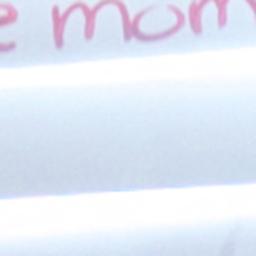 e mom